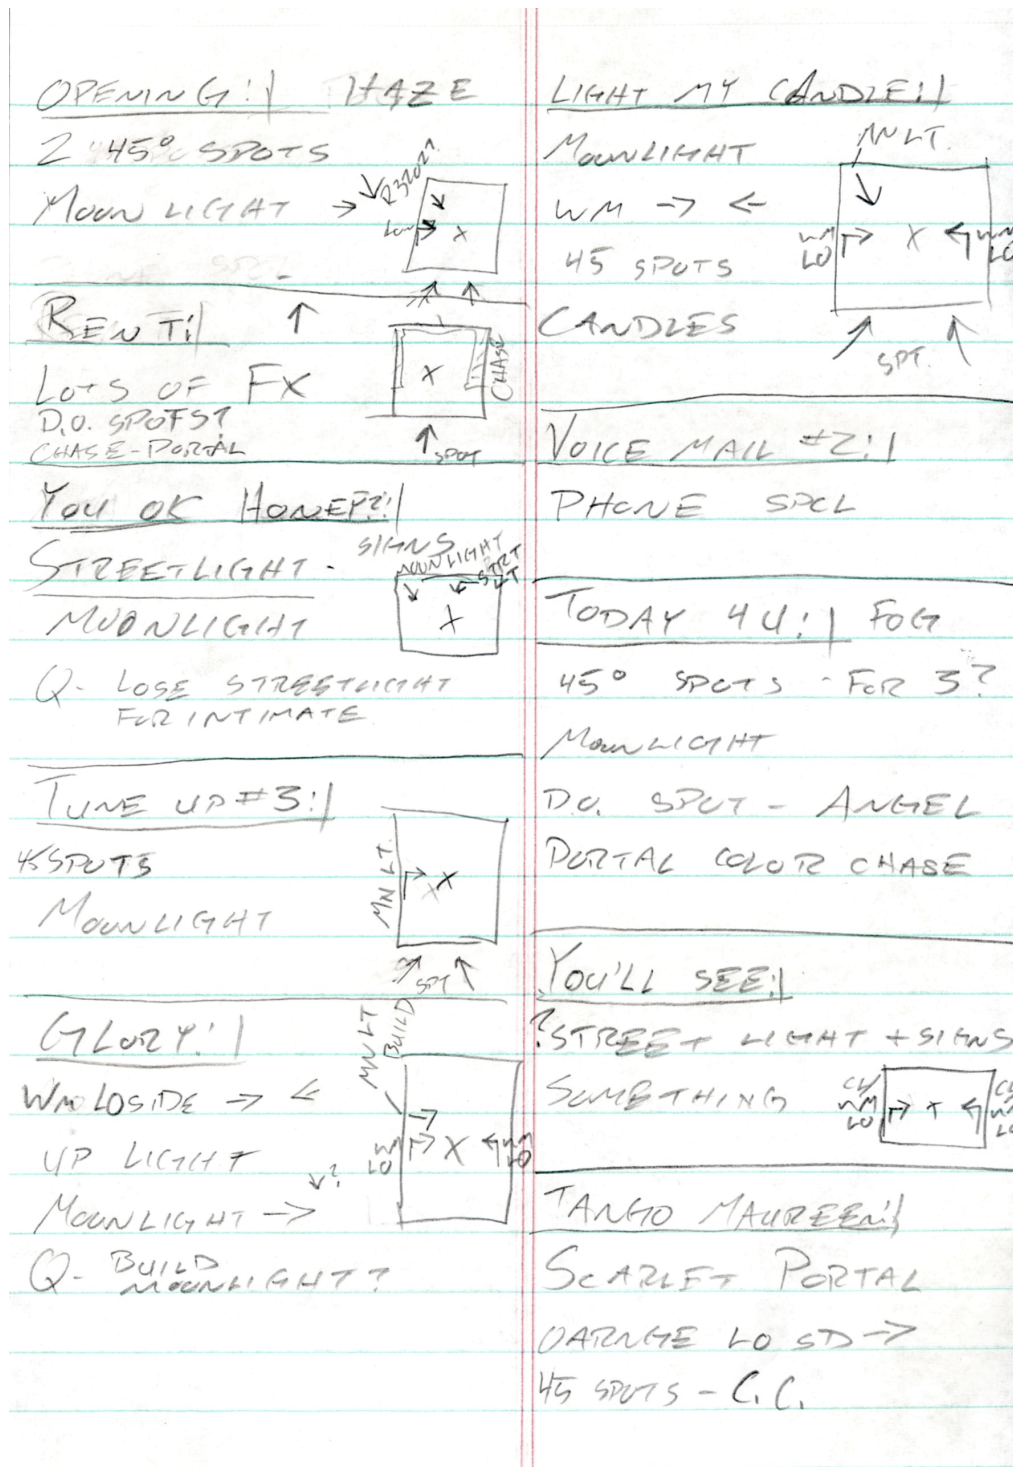 OPENING: HAZE
2 45° SPOTS
MOONLIGHT → R3202?
LOW
X
RENT:
LOTS OF FX
D.O. SPOTS?
CHASE-PORTAL
X
CHASE
SPOT
YOU OK HONEY?:
SIGNS
STREETLIGHT -
MOONLIGHT
STRT
LT
MOONLIGHT
X
Q- LOSE STREETLIGHT
FOR INTIMATE
TUNE UP #3:
45 SPOTS
MOONLIGHT
MN LT.
X X
SPT
GLORY:
MNLT
BUILD
WM LOSIDE → ←
UP LIGHT
WM
LO
X
WM
LO
↓?
MOONLIGHT →
Q- BUILD
MOONLIGHT?
LIGHT MY CANDLE:
MOONLIGHT
MNLT.
WM → ←
WM
LO
X
WM
LO
45 SPOTS
CANDLES
SPT.
VOICE MAIL #2:
PHONE SPCL
TODAY 4 U: FOG
45° SPOTS - FOR 3?
MOONLIGHT
D.O. SPOT - ANGEL
PORTAL COLOR CHASE
YOU'LL SEE:
? STREET LIGHT + SIGNS
SOMETHING
WM
LO
X
WM
LO
TANGO MAUREEN:
SCARLET PORTAL
OARNGE LO SD →
45 SPOTS - C.C.